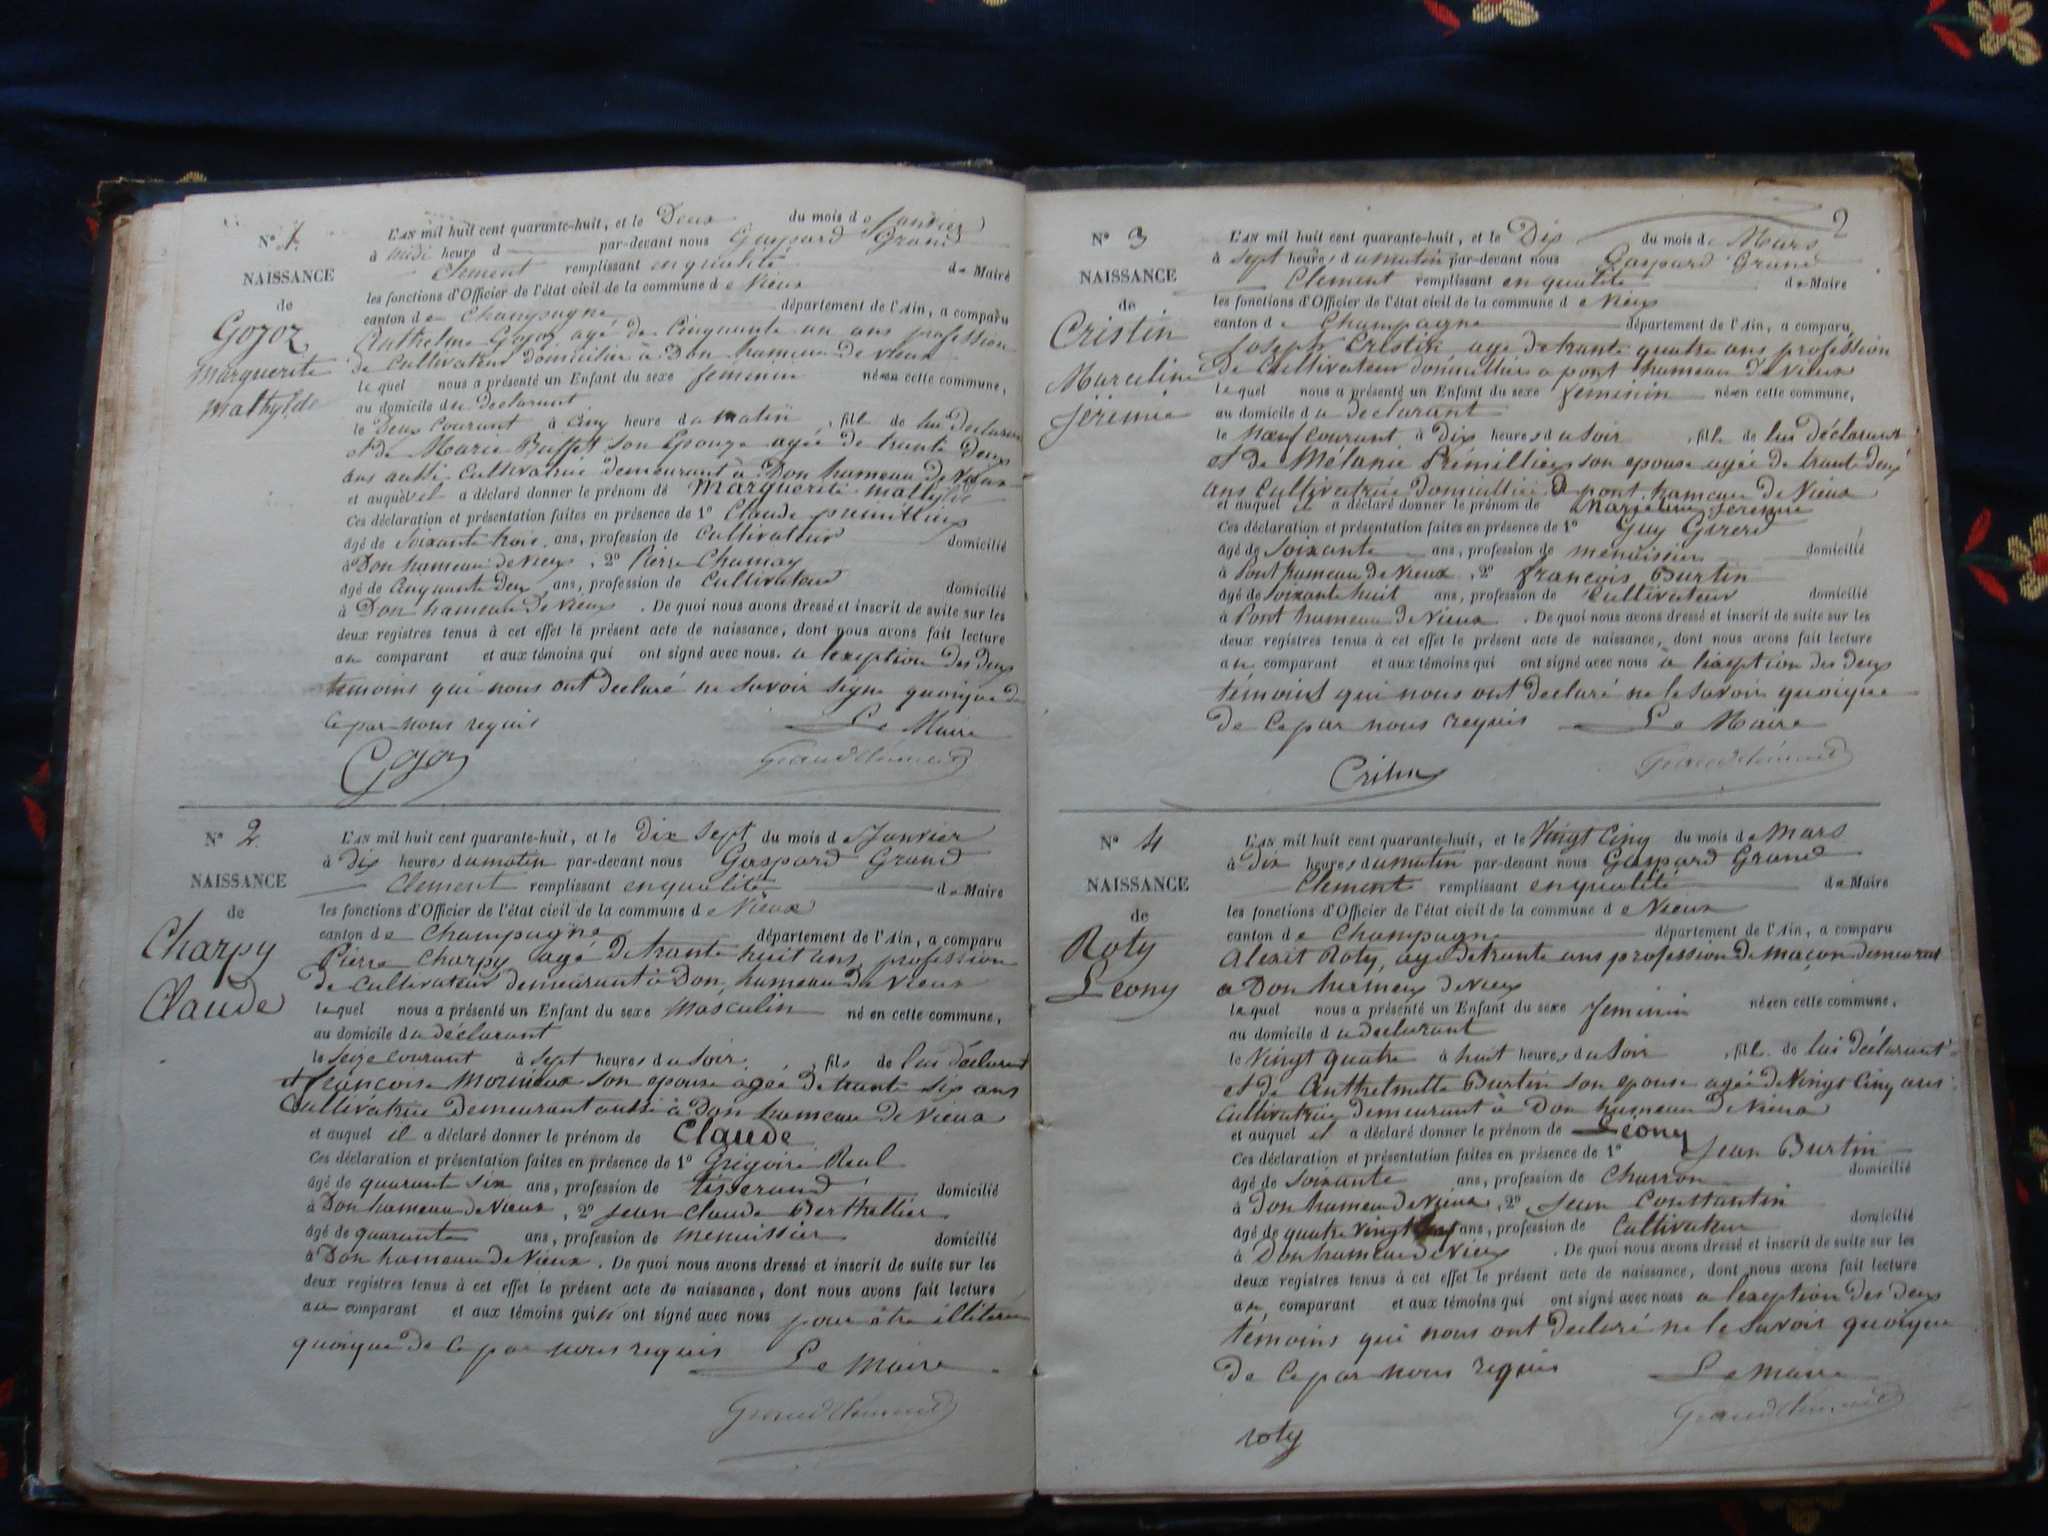 N° 1.
NAISSANCE
de
Gojoz
Marguerite
Mathylde
L'AN mil huit cent quarante-huit, et le Deux du mois de Janvier
à midi heure d par-devant nous Gaspard Grand
Clement remplissant en qualité de Maire
les fonctions d'Officier de l'état civil de la commune de Vieux
canton de Champagne département de l'Ain, a comparu
Anthelme Gojoz, agé de Cinquante un ans profession
de Cultivateur domicilié à Don hameau de vieux
lequel nous a présenté un Enfant du sexe feminin né en cette commune,
au domicile du Declarant
le Deux Courant à Cinq heure du matin, fille de lui Declarant
et de Marie Buffet son Epouze agée de trente Deux
ans aussi Cultivatrice demeurant à Don hameau de Vieux
et auquel il a déclaré donner le prénom de Marguerite Mathylde
Ces déclaration et présentation faites en présence de 1° Claude premillieu
âgé de Soixante trois ans, profession de Cultivateur domicilié
à Don hameau de Vieux, 2° Pierre Chamay
âgé de Cinquante Deux ans, profession de Cultivateur domicilié
à Don hameau de vieux. De quoi nous avons dressé et inscrit de suite sur les
deux registres tenus à cet effet le présent acte de naissance, dont nous avons fait lecture
au comparant et aux témoins qui ont signé avec nous. a lexeption des deux
temoins qui nous ont Declaré ne Savoir signe quoique de
Ce par nous requis Le Maire
Gojoz Grandclément
N° 2.
NAISSANCE
de
Charpy
Claude
L'AN mil huit cent quarante-huit, et le Dix Sept du mois de Janvier
à Dix heures du matin par-devant nous Gaspard Grand
Clement remplissant en qualité de Maire
les fonctions d'Officier de l'état civil de la commune de Vieux
canton de Champagne département de l'Ain, a comparu
Pierre Charpy agé de trente huit ans, profession
de Cultivateur demeurant à Don, hameau de Vieux
lequel nous a présenté un Enfant du sexe Masculin né en cette commune,
au domicile du déclarant
le Seize Courant à Sept heures du Soir, fils de lui déclarant
et francoise Mornieux son epouse agée de trente Six ans
Cultivatrice Demeurant aussi à Don hameau de Vieux
et auquel il a déclaré donner le prénom de Claude
Ces déclaration et présentation faites en présence de 1° Grégoire Réal
âgé de quarante Six ans, profession de tisserand domicilié
à Don hameau de Vieux, 2° Jean Claude Berthellier
âgé de quarante ans, profession de menuissier domicilié
à Don hameau de Vieux. De quoi nous avons dressé et inscrit de suite sur les
deux registres tenus à cet effet le présent acte de naissance, dont nous avons fait lecture
au comparant et aux témoins qui n'ont signé avec nous pour être illitéré
quoique de Ce par nous requis Le Maire
Grandclément
2
N° 3
NAISSANCE
de
Cristin
Marceline
Jéremie
L'AN mil huit cent quarante-huit, et le Dix du mois de Mars
à Sept heures du matin par-devant nous Gaspard Grand
Clement remplissant en qualité de Maire
les fonctions d'Officier de l'état civil de la commune de Vieux
canton de Champagne département de l'Ain, a comparu
Joseph Cristin agé de trante quatre ans profession
de Cultivateur domicillié a pont hameau de Vieux
lequel nous a présenté un Enfant du sexe Feminin né en cette commune,
au domicile du declarant
le Neuf courant à Dix heures du soir, fille de lui déclarant
et de Mélanie Prémillieu son epouse agée de trante deux
ans Cultivatrice Domicilliée à pont hameau de Vieux
et auquel il a déclaré donner le prénom de Marceline Jeremie
Ces déclaration et présentation faites en présence de 1° Guy Girerd
âgé de Soixante ans, profession de menuisier domicilié
à Pont hameau de Vieux, 2° francois Burtin
âgé de Soixante huit ans, profession de Cultivateur domicilié
à Pont hameau de Vieux. De quoi nous avons dressé et inscrit de suite sur les
deux registres tenus à cet effet le présent acte de naissance, dont nous avons fait lecture
au comparant et aux témoins qui ont signé avec nous a l'exeption des deux
témoins qui nous ont declaré ne le Savoir quoique
de Ce par nous requis Le Maire
Cristin Grandclément
N° 4
NAISSANCE
de
Roty
Leony
L'AN mil huit cent quarante-huit, et le Vingt Cinq du mois de Mars
à dix heures du matin par-devant nous Gaspard Grand
Clement remplissant en qualité de Maire
les fonctions d'Officier de l'état civil de la commune de Vieux
canton de Champagne département de l'Ain, a comparu
Alexit Roty, agé de trante ans profession de macon demeurant
a Don hameux de vieux
lequel nous a présenté un Enfant du sexe Feminin né en cette commune,
au domicile du declarant
le Vingt quatre à huit heures du Soir, fille de lui déclarant
et de Anthelmette Burtin son epouse agée de Vingt Cinq ans
Cultivatrice demeurant à Don hameau de Vieux
et auquel il a déclaré donner le prénom de Léony
Ces déclaration et présentation faites en présence de 1° Jean Burtin
âgé de Soixante ans, profession de Charron domicilié
à Don hameau de Vieux, 2° Jean Constantin
âgé de quatre Vingt ans, profession de Cultivateur domicilié
à Don hameau de Vieux. De quoi nous avons dressé et inscrit de suite sur les
deux registres tenus à cet effet le présent acte de naissance, dont nous avons fait lecture
au comparant et aux témoins qui ont signé avec nous a lexeption des deux
témoins qui nous ont declaré ne le Savoir quoique
de Ce par nous requis Le Maire
Grandclément
roty